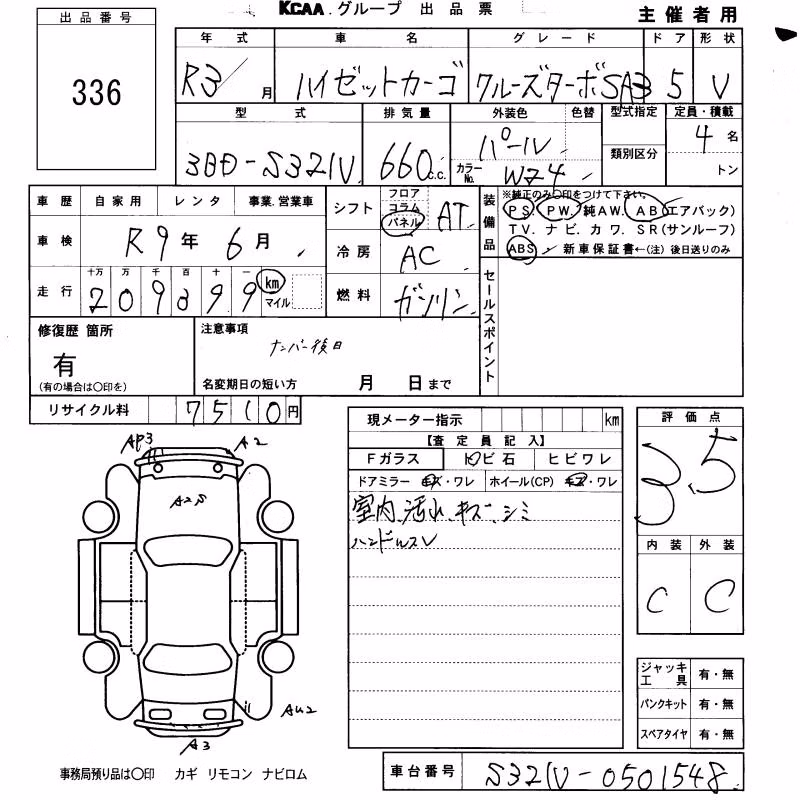 KCAA.グループ 出品票
主催者用
出品番号
336
年式 車名 グレード ドア 形状
R3/ 月 ハイゼットカーゴ クルーズターボSAⅢ 5 V
型式 排気量 外装色 色替 型式指定 定員・積載
3BD-S321V 660 c.c. パール 4 名
カラーNo. W24 類別区分 トン
車歴 自家用 レンタ 事業.営業車
車検 R9年 6月
走行 十万 万 千 百 十 一
209399 km マイル
シフト フロア コラム パネル AT
冷房 AC
燃料 ガソリン
装備品
※純正のみ〇印をつけて下さい。
PS. PW. 純AW. AB(エアバック)
TV. ナビ. カワ. SR(サンルーフ)
ABS 新車保証書←(注) 後日送りのみ
セールスポイント
修復歴 箇所
有
(有の場合は〇印を)
注意事項
ナンバー後日
名変期日の短い方 月 日まで
リサイクル料 7510円
現メーター指示 km
【査定員記入】
Fガラス トビ石 ヒビワレ
ドアミラー キズ・ワレ ホイール(CP) キズ・ワレ
室内、汚れ、キズ、シミ
ハンドルスレ
評価点
3.5
内装 外装
C C
AP3
A2
A2S
AU2
A3
ジャッキ工具 有・無
パンクキット 有・無
スペアタイヤ 有・無
事務局預り品は〇印 カギ リモコン ナビロム
車台番号 S321V-0501548